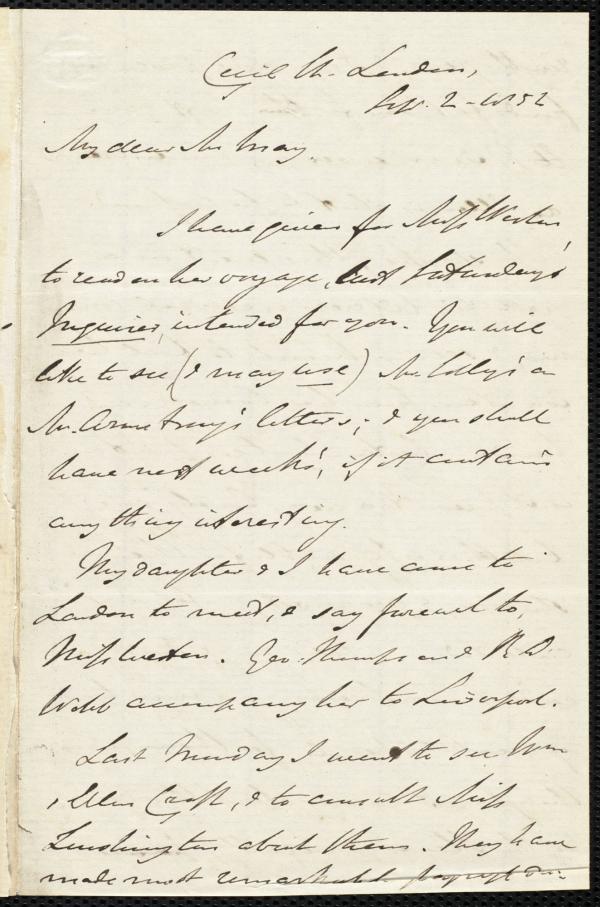 Cecil St. London,
Sep. 2 - 1852
My dear Mr May.
I have given for Miss Weston,
to read on her voyage, last Saturday's
Inquirer, intended for you. You will
like to see (& may use) Mr
Mr. Armstrong's letters; & you shall
have next week's, if it contains
anything interesting.
My daughter & I have come to
London to meet, & say farewell to,
Miss Weston. Geo. Thompson & R. D.
Webb accompany her to Liverpool.
Last Monday I went to see Wm
& Ellen Craft, & to consult Miss
Lushington about them. They have
made most remarkable progress